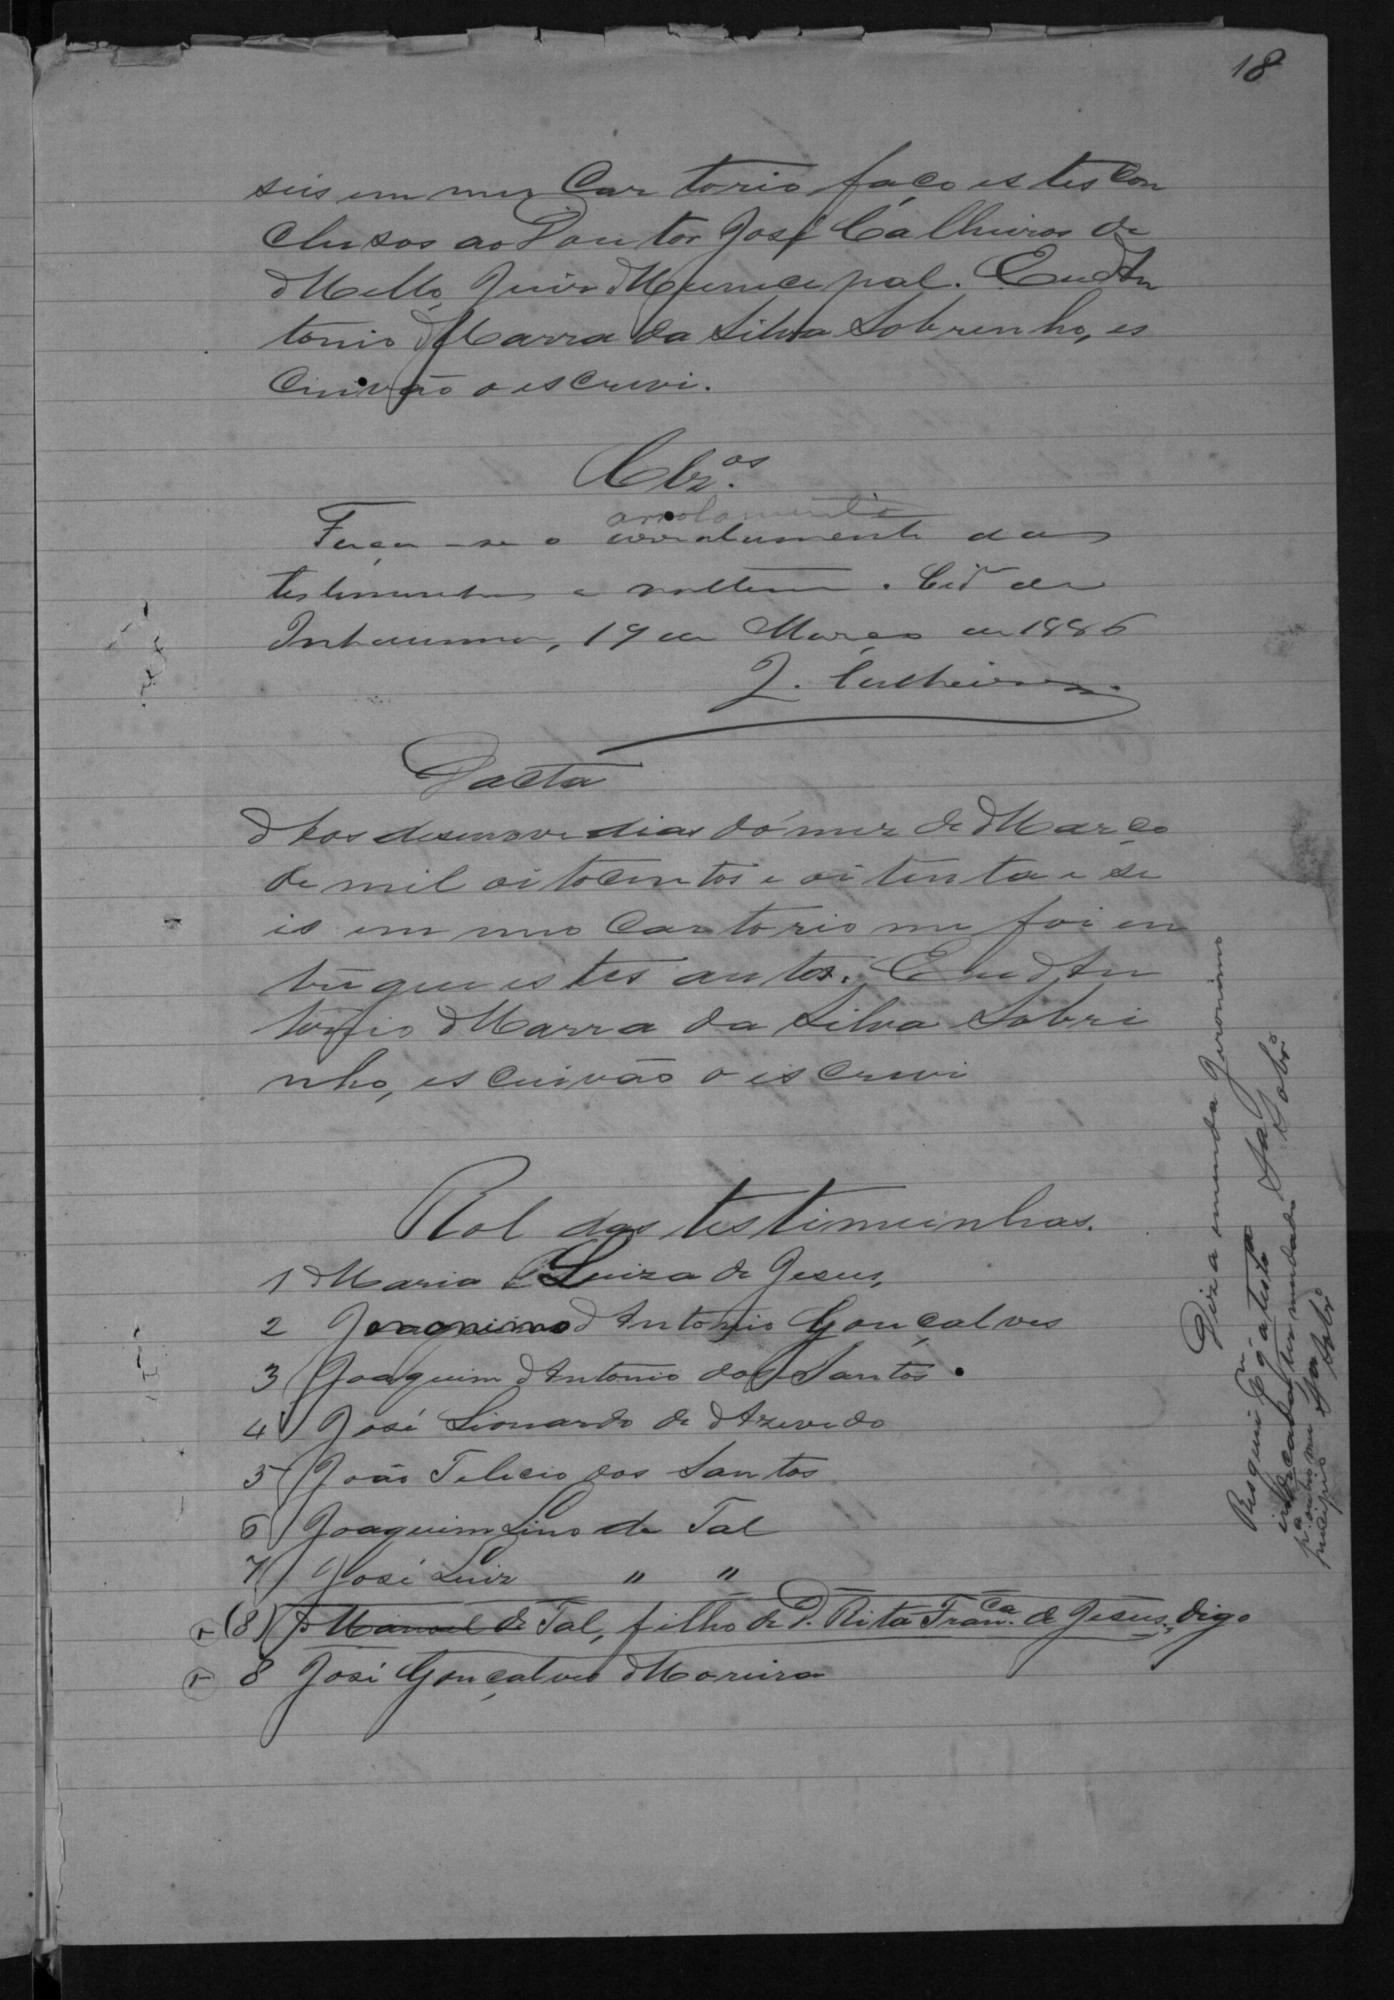 18
seis em meu Cartorio faço estes con
clusos ao Doutor José Calheiros de
Mello, Juiz Municipal. Eu An
tonio Marra da Silva Sobrinho, es
crivão o escrevi.
Clz.os
arrolamento
Faça-se o arrolamento das
testimunhas e voltem. Cid.e de
Inhauma, 19 de Março de 1886
J. Calheiros
Dacta
Aos desenove dias do mez de Março
de mil oitocentos e oitenta e se
is em meo Cartorio me foi en
trégue estes autos. Eu An
tonio Marra da Silva Sobri
nho, escrivão o escrevi
Rol das testimunhas.
1 Maria Luiza de Jesus,
2 Jeronimo Antonio Gonçalves
3 Joaquim Antonio dos Santos.
4 José Lionardo de Azevedo
5 João Felicio dos Santos
6 Joaquim Lino de Tal
7 José Luiz " "
(8) Manoel de Tal, filho de D. Rita Fran.ca de Jesus, digo
8 José Gonçalves Moreira
Diz a emenda Jeronimo
S.a Sobr.o
a test.a
mudado
p.a outro mu
nicipio S.a Sobr.o